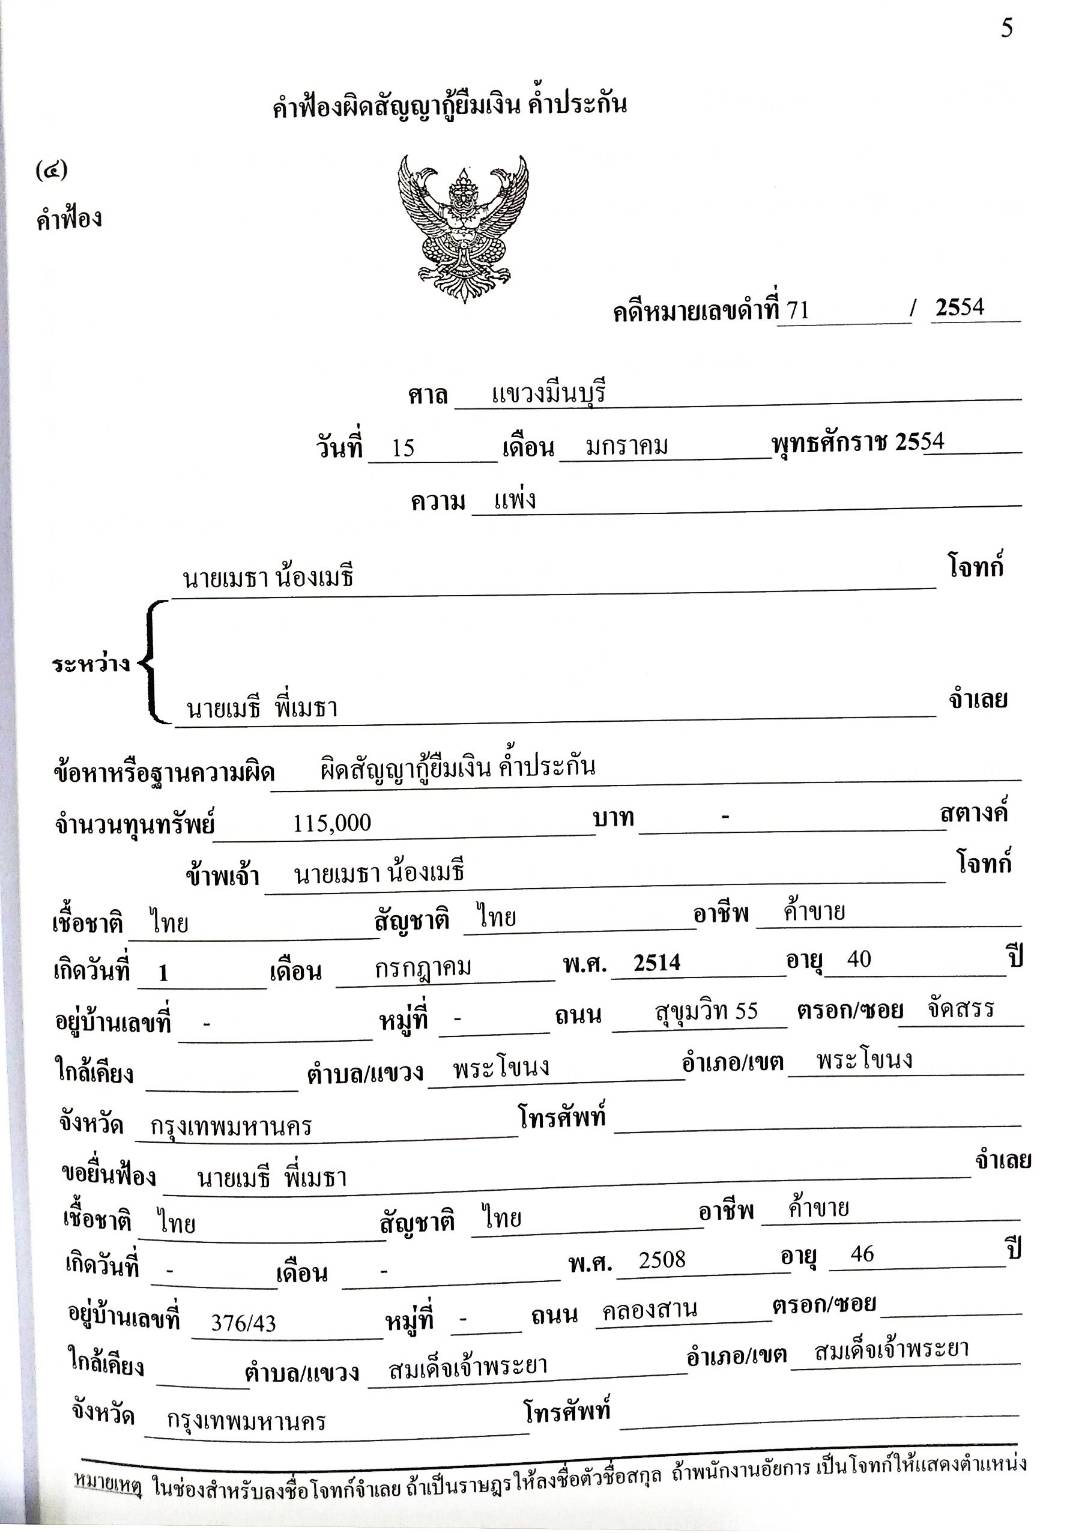 5
คำฟ้องผิดสัญญากู้ยืมเงิน ค้ำประกัน
(๔)
คำฟ้อง
คดีหมายเลขดำที่ 71 / 2554
ศาล แขวงมีนบุรี
วันที่ 15 เดือน มกราคม พุทธศักราช 2554
ความ แพ่ง
นายเมธา น้องเมธี โจทก์
ระหว่าง
นายเมธี พี่เมธา จำเลย
ข้อหาหรือฐานความผิด ผิดสัญญากู้ยืมเงิน ค้ำประกัน
จำนวนทุนทรัพย์ 115,000 บาท - สตางค์
ข้าพเจ้า นายเมธา น้องเมธี โจทก์
เชื้อชาติ ไทย สัญชาติ ไทย อาชีพ ค้าขาย
เกิดวันที่ 1 เดือน กรกฎาคม พ.ศ. 2514 อายุ 40 ปี
อยู่บ้านเลขที่ - หมู่ที่ - ถนน สุขุมวิท 55 ตรอก/ซอย จัดสรร
ใกล้เคียง ตำบล/แขวง พระโขนง อำเภอ/เขต พระโขนง
จังหวัด กรุงเทพมหานคร โทรศัพท์
ขอยื่นฟ้อง นายเมธี พี่เมธา จำเลย
เชื้อชาติ ไทย สัญชาติ ไทย อาชีพ ค้าขาย
เกิดวันที่ - เดือน - พ.ศ. 2508 อายุ 46 ปี
อยู่บ้านเลขที่ 376/43 หมู่ที่ - ถนน คลองสาน ตรอก/ซอย
ใกล้เคียง ตำบล/แขวง สมเด็จเจ้าพระยา อำเภอ/เขต สมเด็จเจ้าพระยา
จังหวัด กรุงเทพมหานคร โทรศัพท์
หมายเหตุ ในช่องสำหรับลงชื่อโจทก์จำเลย ถ้าเป็นราษฎรให้ลงชื่อตัวชื่อสกุล ถ้าพนักงานอัยการ เป็นโจทก์ให้แสดงตำแหน่ง